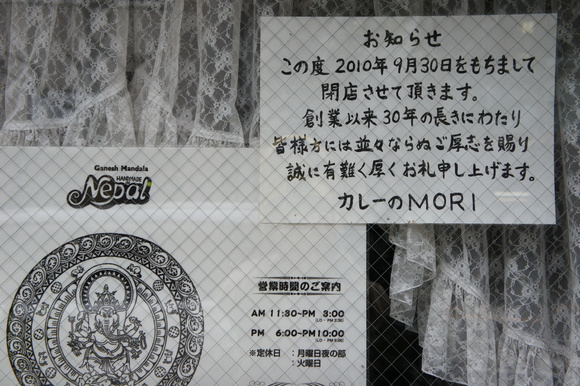 お知らせ
この度 2010年9月30日をもちまして
閉店させて頂きます。
創業以来30年の長きにわたり
皆様方には並々ならぬご厚志を賜り
誠に有難く厚くお礼申し上げます。
カレーのMORI
Ganesh Mandala
HANDMADE
Nepal
営業時間のご案内
AM 11:30~PM 3:00
PM 6:00~PM10:00
※定休日 : 月曜日夜の部
: 火曜日